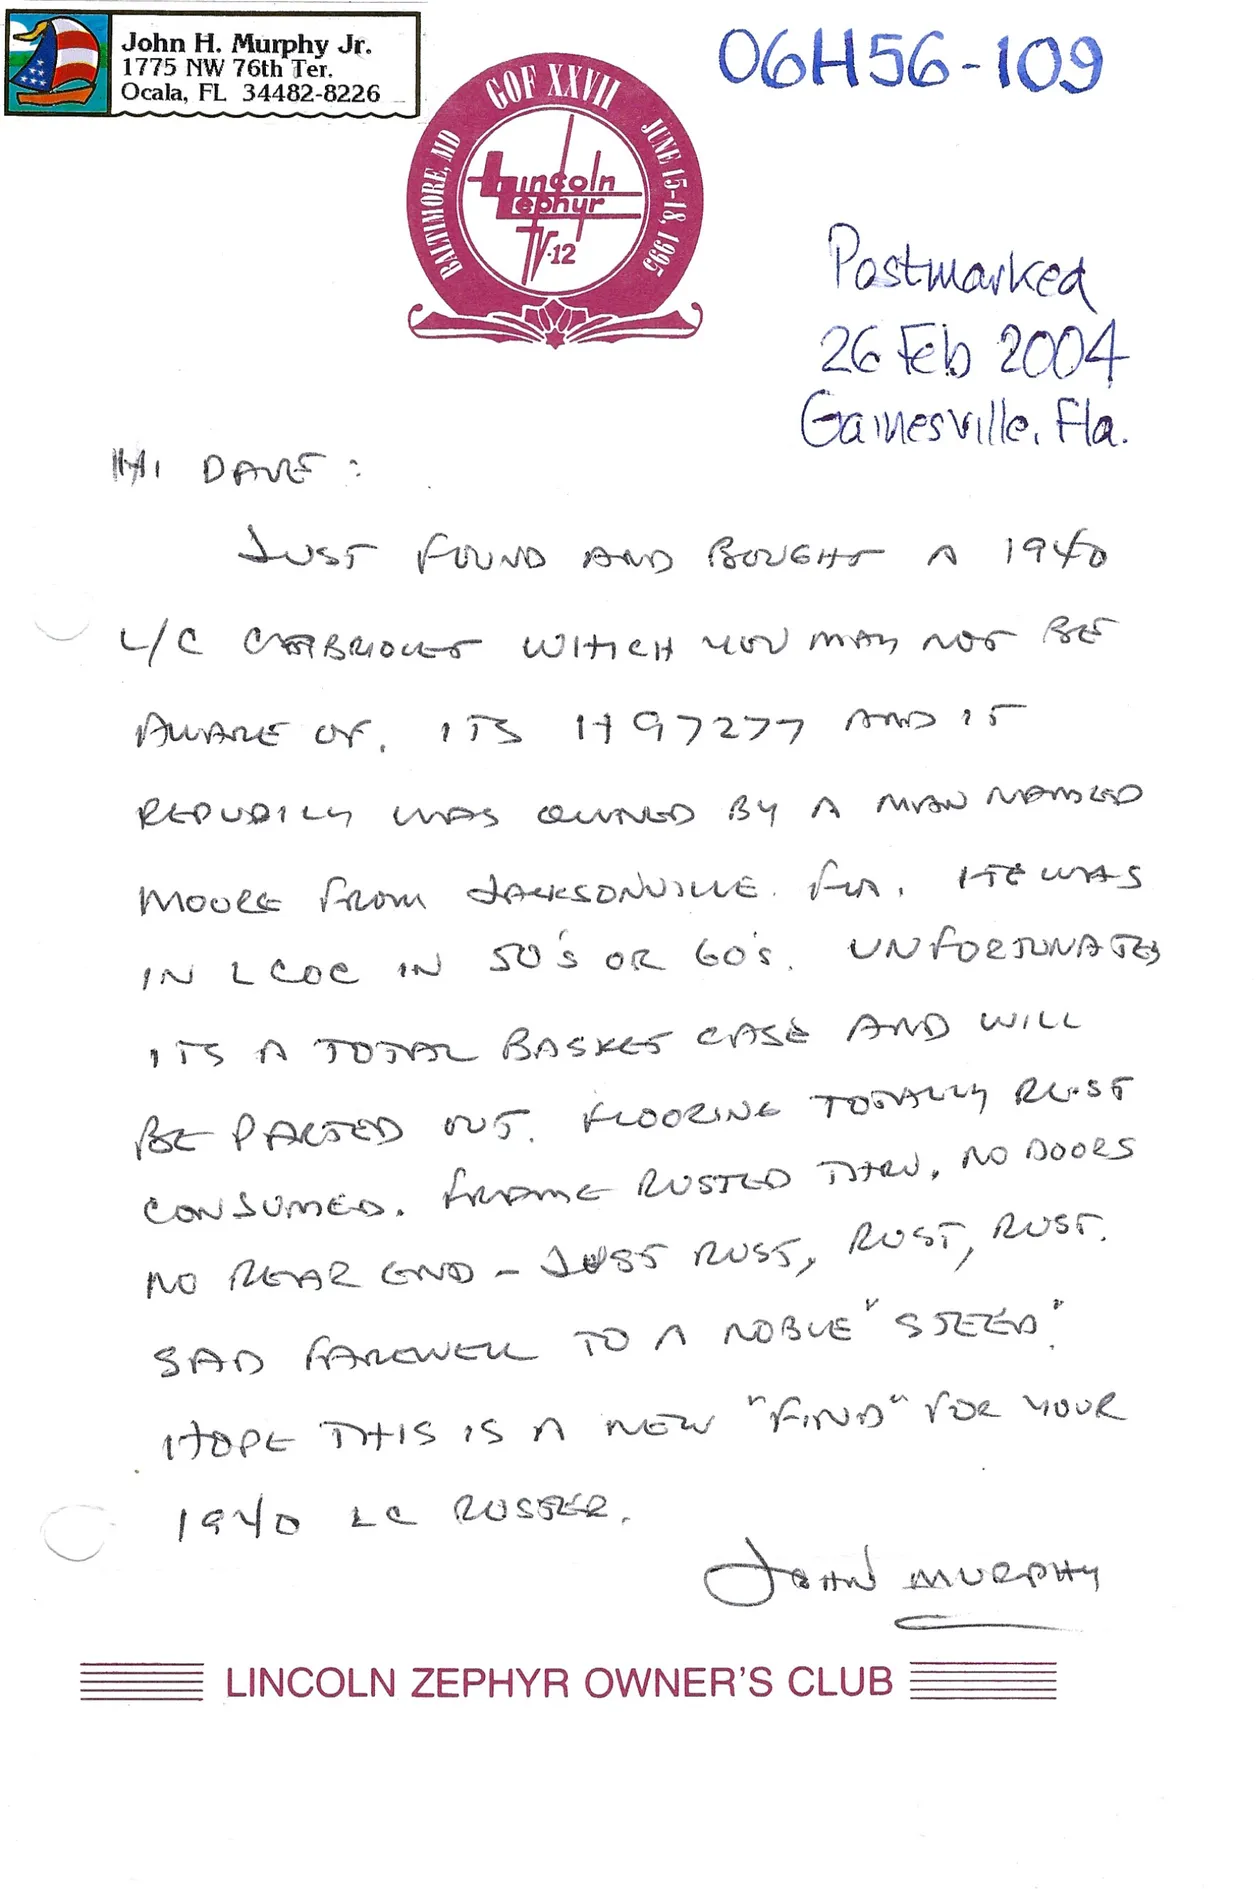 John H. Murphy Jr.
1775 NW 76th Ter.
Ocala, FL 34482-8226
06H56-109
GOF XXVII
BALTIMORE, MD
JUNE 15-18, 1995
Lincoln
Zephyr
V-12
Postmarked
26 Feb 2004
Gainesville, Fla.
HI DAVE:
JUST FOUND AND BOUGHT A 1940
L/C CABRIOLET WHICH YOU MAY NOT BE
AWARE OF. ITS H97277 AND IT
REPUDILY WAS OWNED BY A MAN NAMED
MOORE FROM JACKSONVILLE. FLA. HE WAS
IN LCOC IN 50'S OR 60'S. UNFORTUNATELY
ITS A TOTAL BASKET CASE AND WILL
BE PARTED OUT. FLOORING TOTALLY RUST
CONSUMED. FRAME RUSTED THRU, NO DOORS
NO REAR END - JUST RUST, RUST, RUST.
SAD FAREWELL TO A NOBLE "STEED".
HOPE THIS IS A NEW "FIND" FOR YOUR
1940 LC ROSTER.
JOHN MURPHY
LINCOLN ZEPHYR OWNER'S CLUB